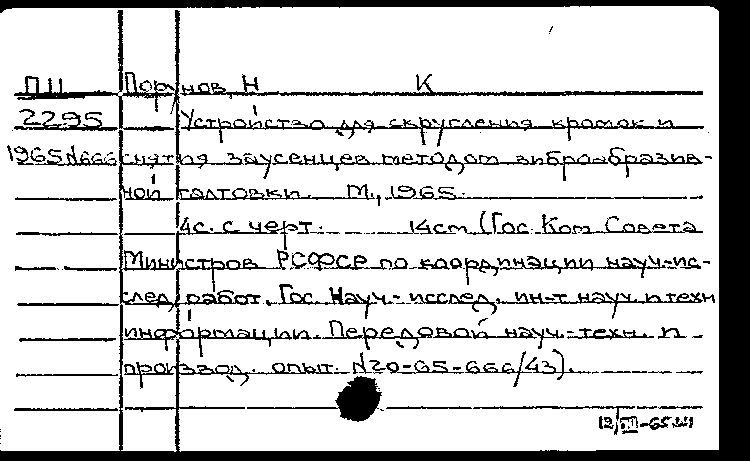 ПII Порунов, Н К
2295 Устройство для скругления кромок и
1965 №666 снятия заусенцев методом виброабразив-
ной галтовки. М., 1965.
4с. с черт. 14см (Гос. Ком Совета
Министров РСФСР по координации науч-ис-
след. работ. Гос. Науч.-исслед. ин-т науч. и техн
информации. Передовой науч.-техн. и
производ. опыт. №20-65-666/43).